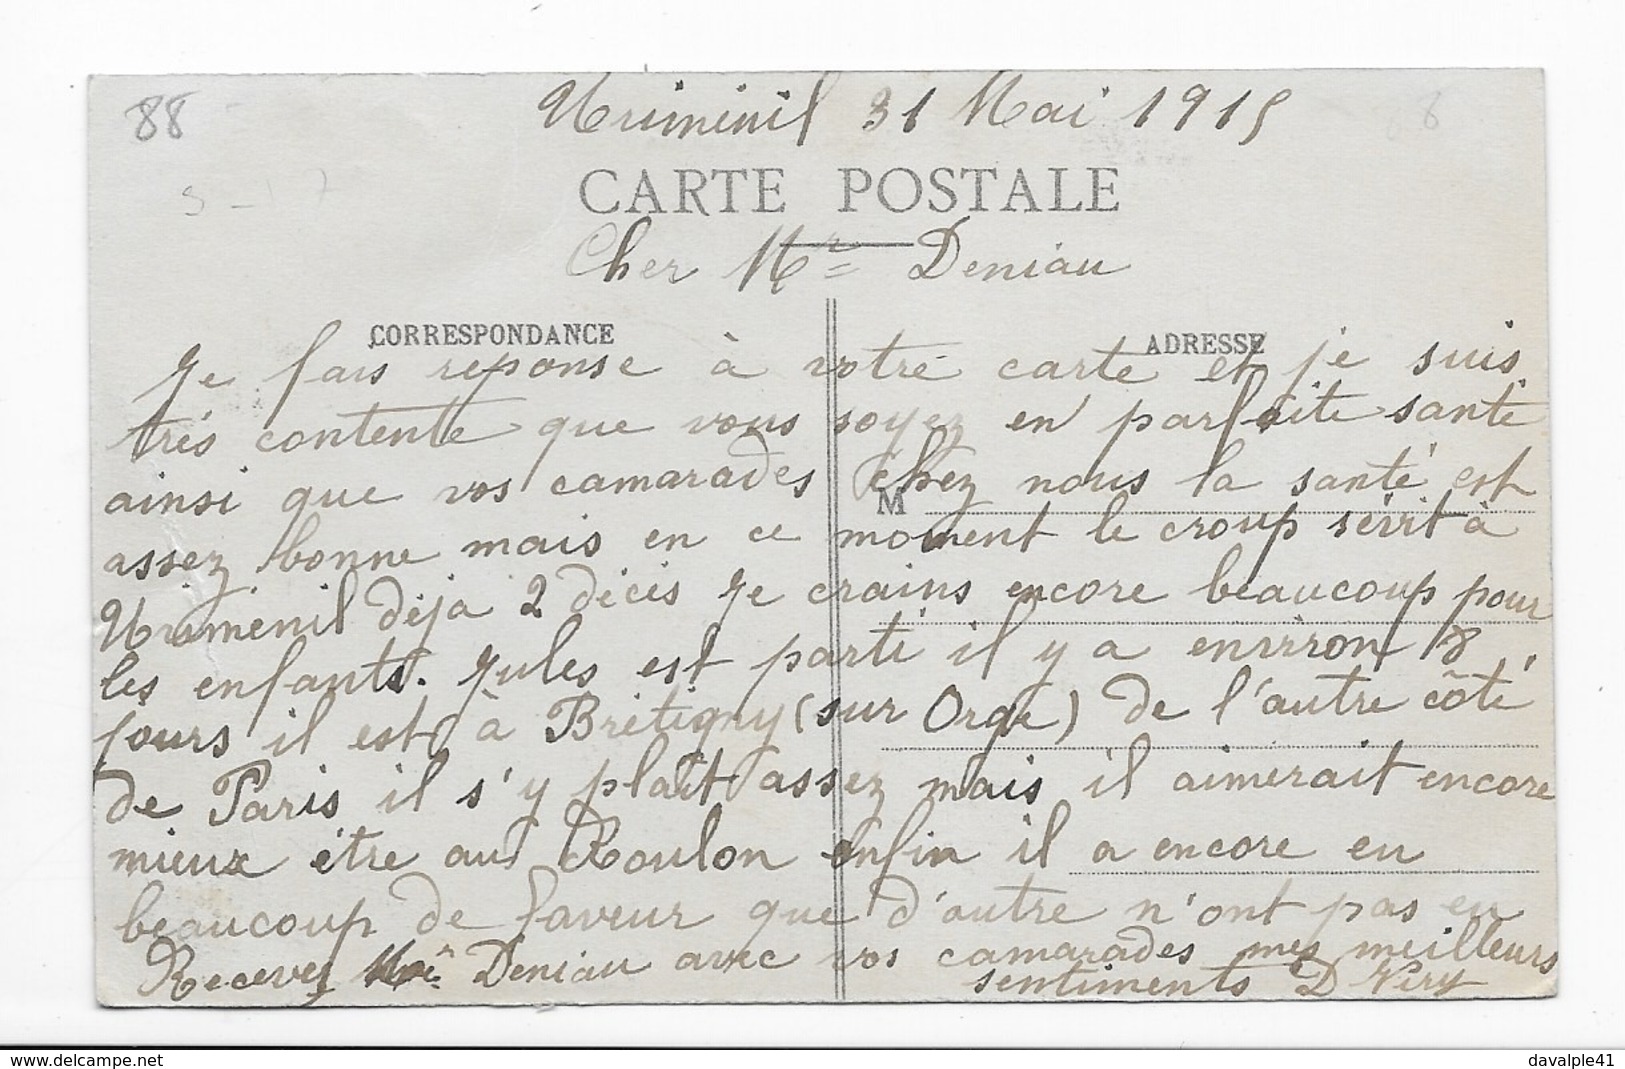 88
Uriménil 31 Mai 1915
CARTE POSTALE
Cher Mr Deniau
CORRESPONDANCE
ADRESSE
Je fais reponse à votre carte et je suis
très contente que vous soyez en parfaite santé
ainsi que vos camarades chez nous la santé est
M
assez bonne mais en ce moment le croup sévit à
Uriménil déja 2 décés Je crains encore beaucoup pour
les enfants. Jules est parti il y a environ 8
jours il est à Brétigny (sur Orge) de l'autre côté
de Paris il s'y plait assez mais il aimerait encore
mieux être au Roulon enfin il a encore eu
beaucoup de faveur que d'autre n'ont pas eu
Recevez Mr Deniau avec vos camarades mes meilleurs
sentiments D Viry
davalple41
www.delcampe.net